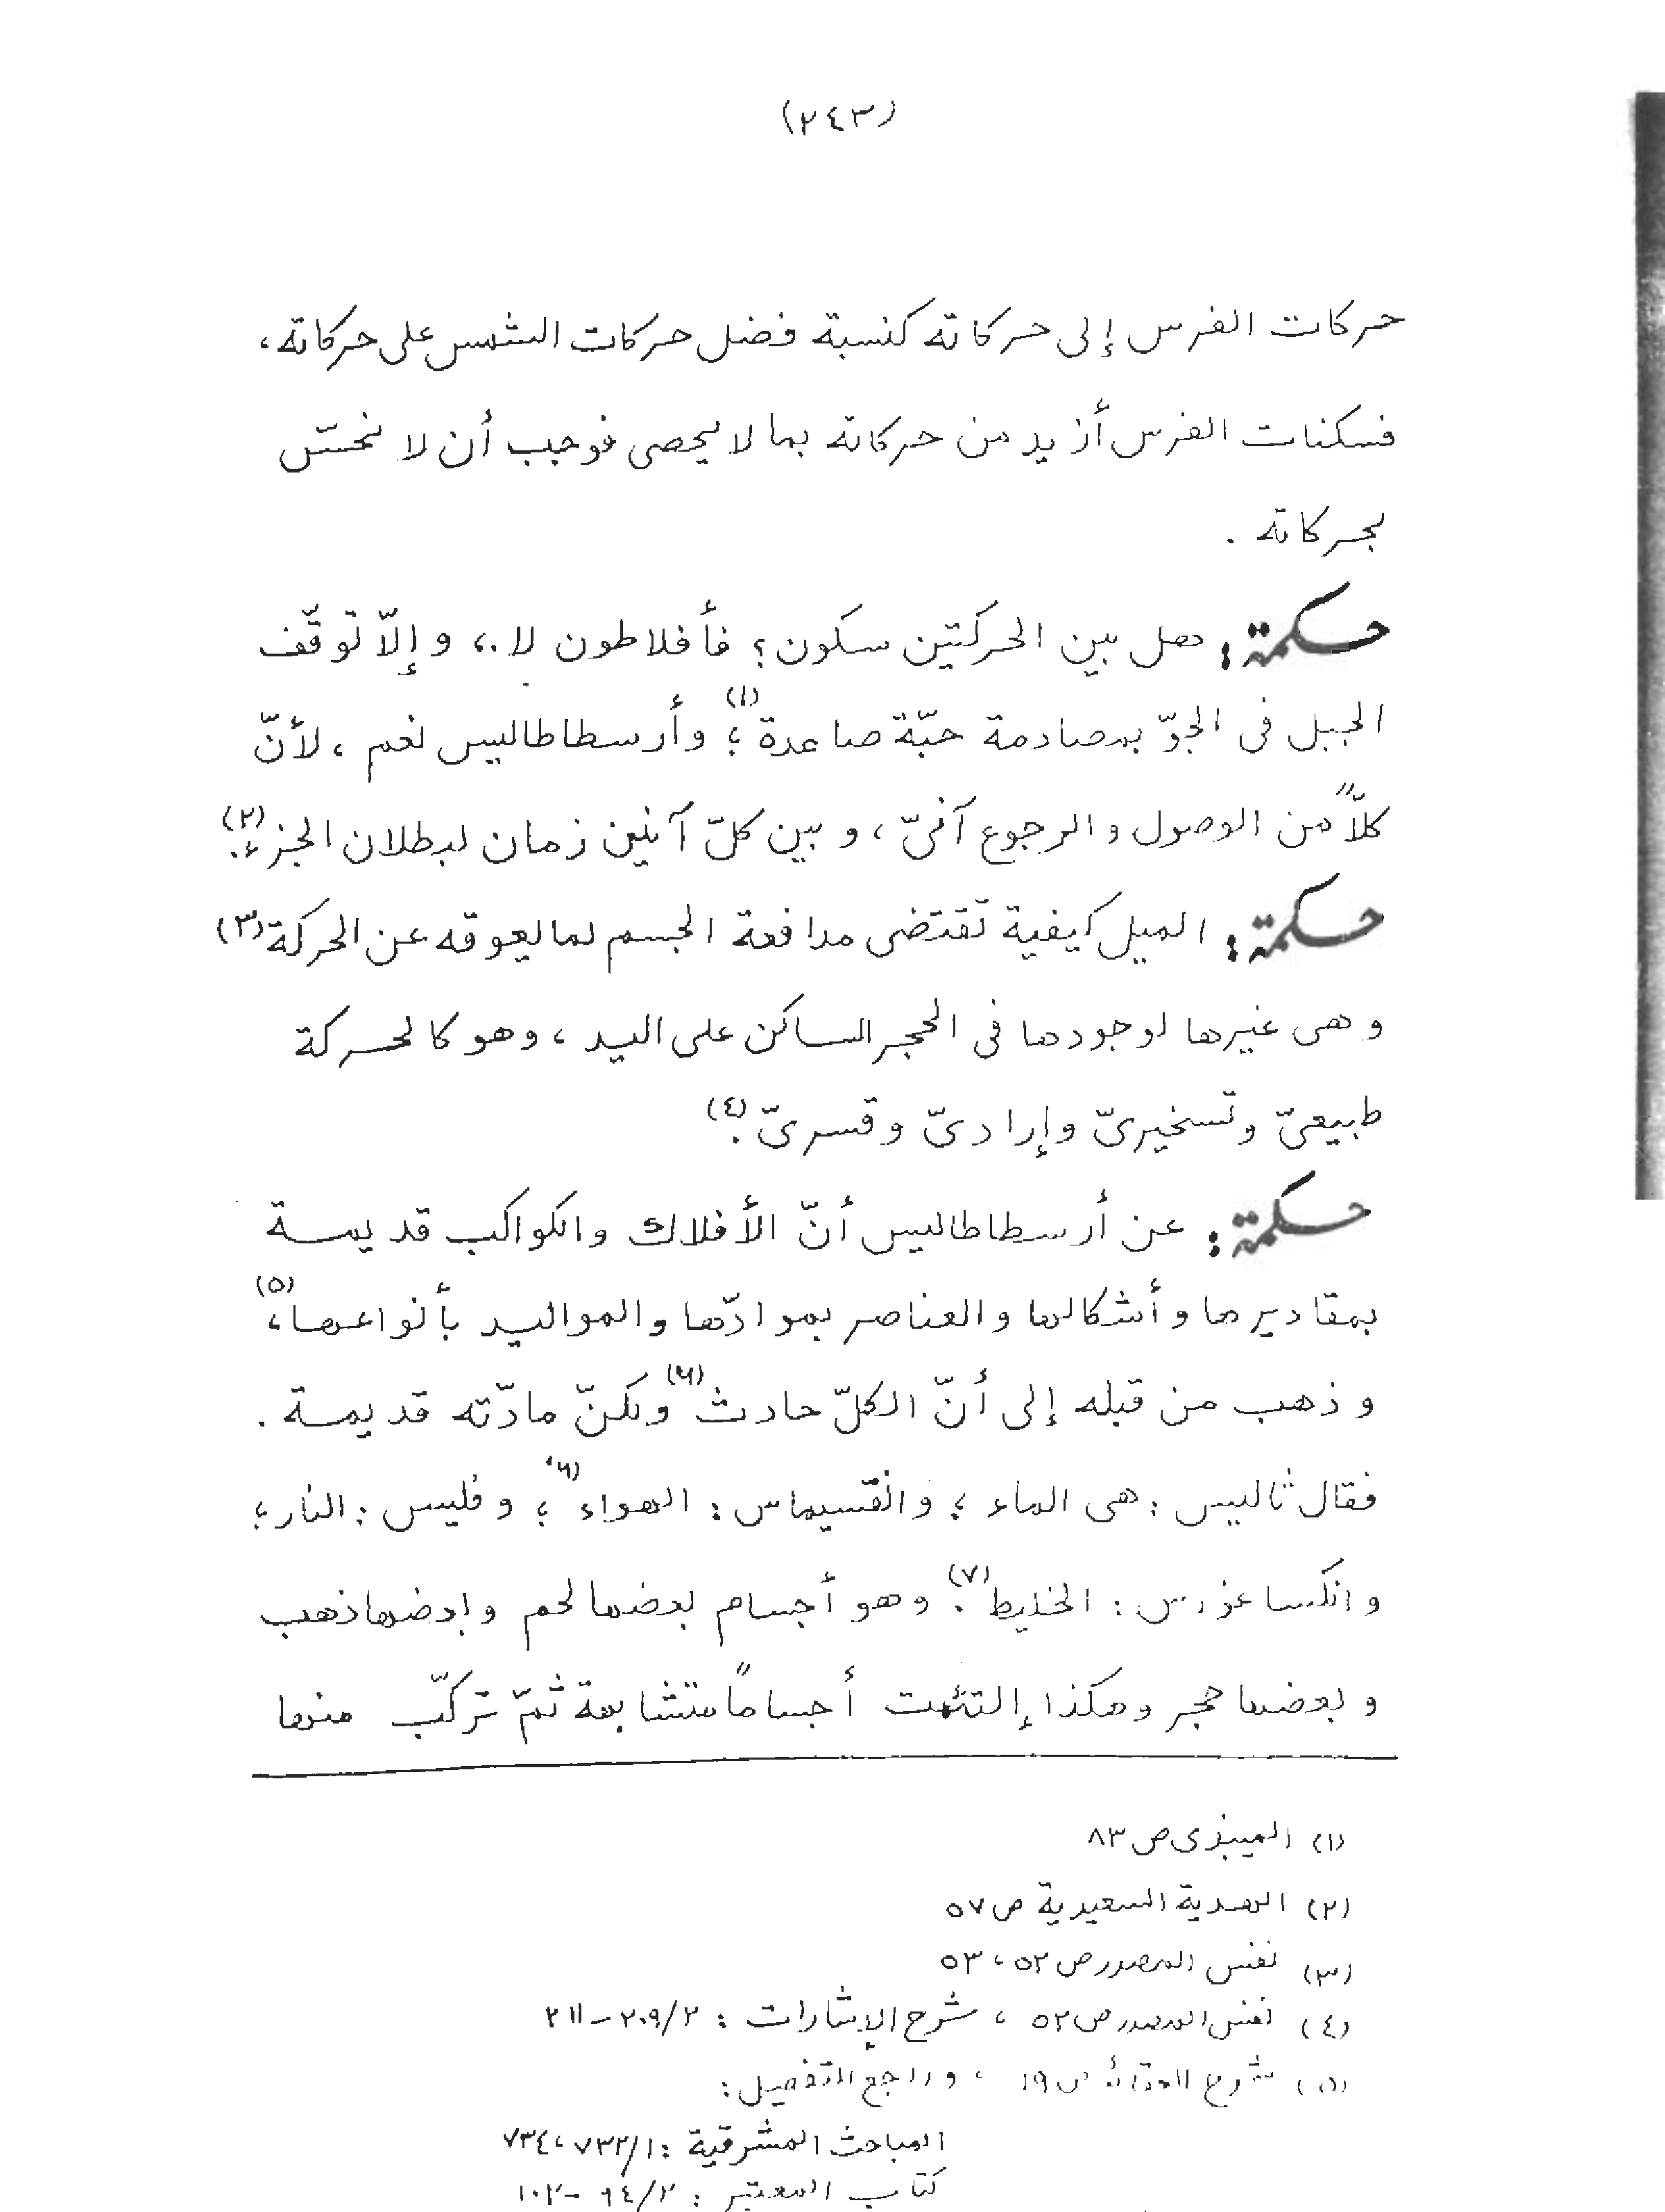 (٢٤٣)
حركات الفرس إلى حركاته كنسبة فضل حركات الشمس على حركاته،
فسكنات الفرس أزيد من حركاته بما لا يحصى فوجب أن لا نحسّ
بحركاته .
حكمة: هل بين الحركتين سكون؟ فأفلاطون لا.، وإلّا توقّف
الجبل فى الجوّ بمصادمة حبّة صاعدة(١)؛ وأرسطاطاليس نعم، لأنّ
كلّاً من الوصول والرجوع آنىّ، وبين كلّ آنين زمان لبطلان الجزء(٢).
حكمة: الميل كيفية تقتضى مدافعة الجسم لما يعوقه عن الحركة(٣)
وهى غيرها لوجودها فى الحجر الساكن على اليد، وهو كالحركة
طبيعىّ وتسخيرىّ وإرادىّ وقسرىّ(٤).
حكمة: عن أرسطاطاليس أنّ الأفلاك والكواكب قديمة
بمقاديرها وأشكالها والعناصر بموادّها والمواليد بأنواعها(٥)،
وذهب من قبله إلى أنّ الكلّ حادث(٦) ولكنّ مادّته قديمة .
فقال ثاليس : هى الماء ؛ وانقسيماس : الهواء(٦)؛ وفليس : النار؛
وانكساغورس : الخليط(٧). وهو أجسام بعضها لحم وبعضها ذهب
وبعضها حجر وهكذا إلتئمت أجساماً متشابهة ثمّ تركّب منها
(١) الميبذى ص ٨٣
(٢) الهدية السعيدية ص ٥٧
(٣) نفس المصدر ص ٥٢، ٥٣
(٤) نفس المصدر ص ٥٢ ، شرح الإشارات : ٢/٢٠٩ - ٢١١
(٥) شرح العقائد ص ١٩ ، وراجع التفصيل :
المباحث المشرقية : ١/٧٣٣، ٧٣٤
كتاب المعتبر : ٢/٩٤ - ١٠٢